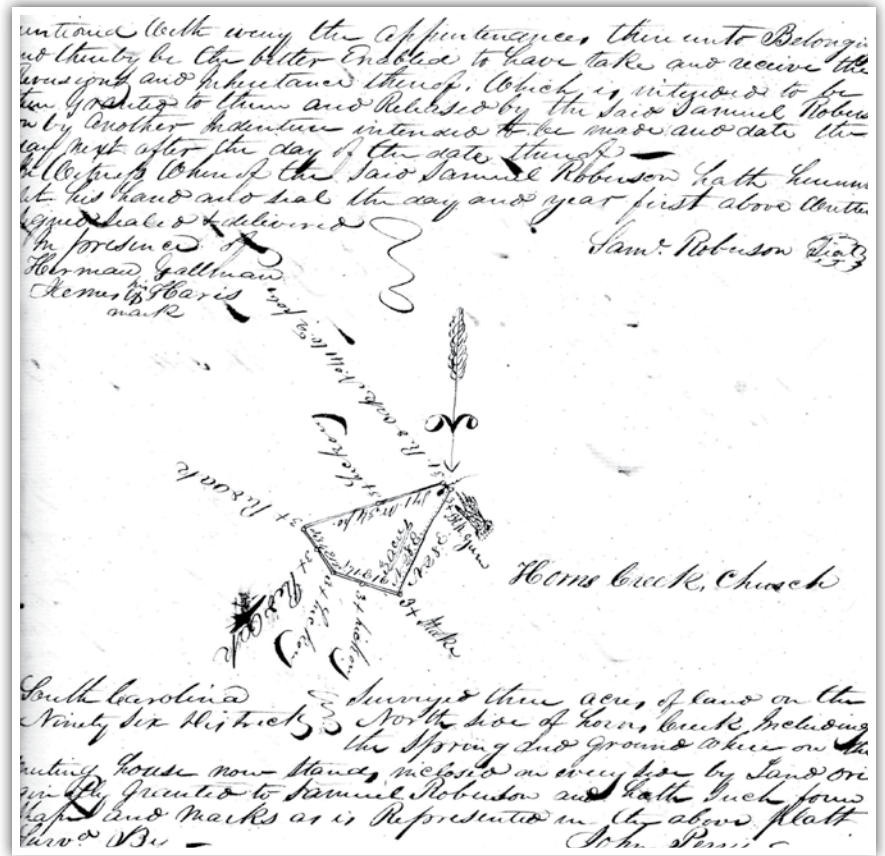 entioned With every the appurtenances thereunto Belongin
and thereby be the better Enabled to have take and receive the
Reversion and Inheritance thereof. Which is intended to be
then granted to them and Released by the said Samuel Rober
n by Another Indenture intended to be made and date the
day next after the day of the date thereof
In Witness Whereof the said Samuel Roberson hath hereun
set his hand and seal the day and year first above Writte
signed sealed & delivered
In presence of
Saml. Roberson Seal
Herman Gallman
his
Haris
mark
3+ Hickory
3+ Red oak
3+ Red Oak
3+ Hickory
3+ Hickory
3+ Stake
Gum
Horns Creek, Church
South Carolina
Ninety Six District
Surveyed three acres of land on the
North side of horns Creek Including
the Spring and Ground where on the
meeting house now stands inclosed on every side by Land ori
ginally granted to Samuel Roberson and hath Such form
shape and marks as is Represented in the above platt
Survd. By
John Perry